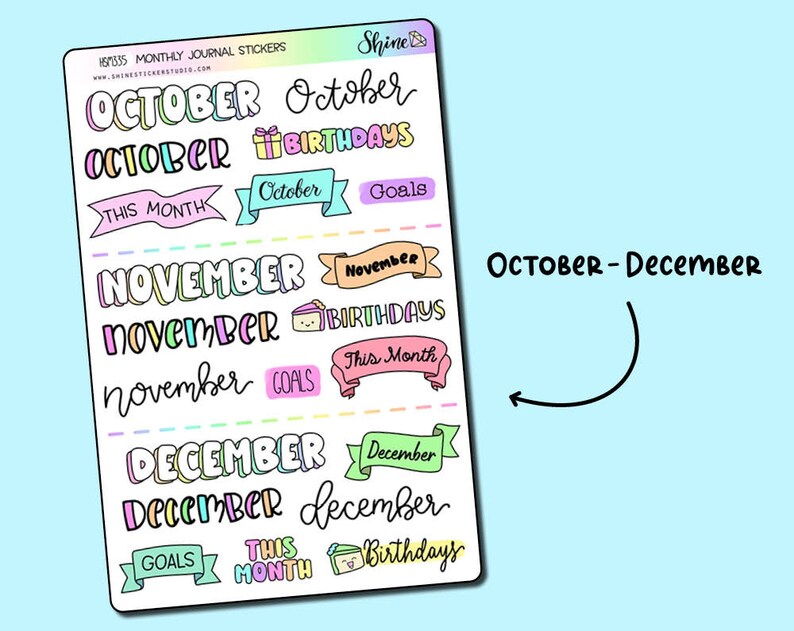 HSM335 MONTHLY JOURNAL STICKERS Shine
WWW.SHINESTICKERSTUDIO.COM
OCTOBER October
OCTOBER BIRTHDAYS
THIS MONTH October Goals
NOVEMBER November
NOVEMBER BIRTHDAYS
november GOALS This Month
DECEMBER December
DECEMBER december
GOALS THIS MONTH Birthdays
OCTOBER - DECEMBER